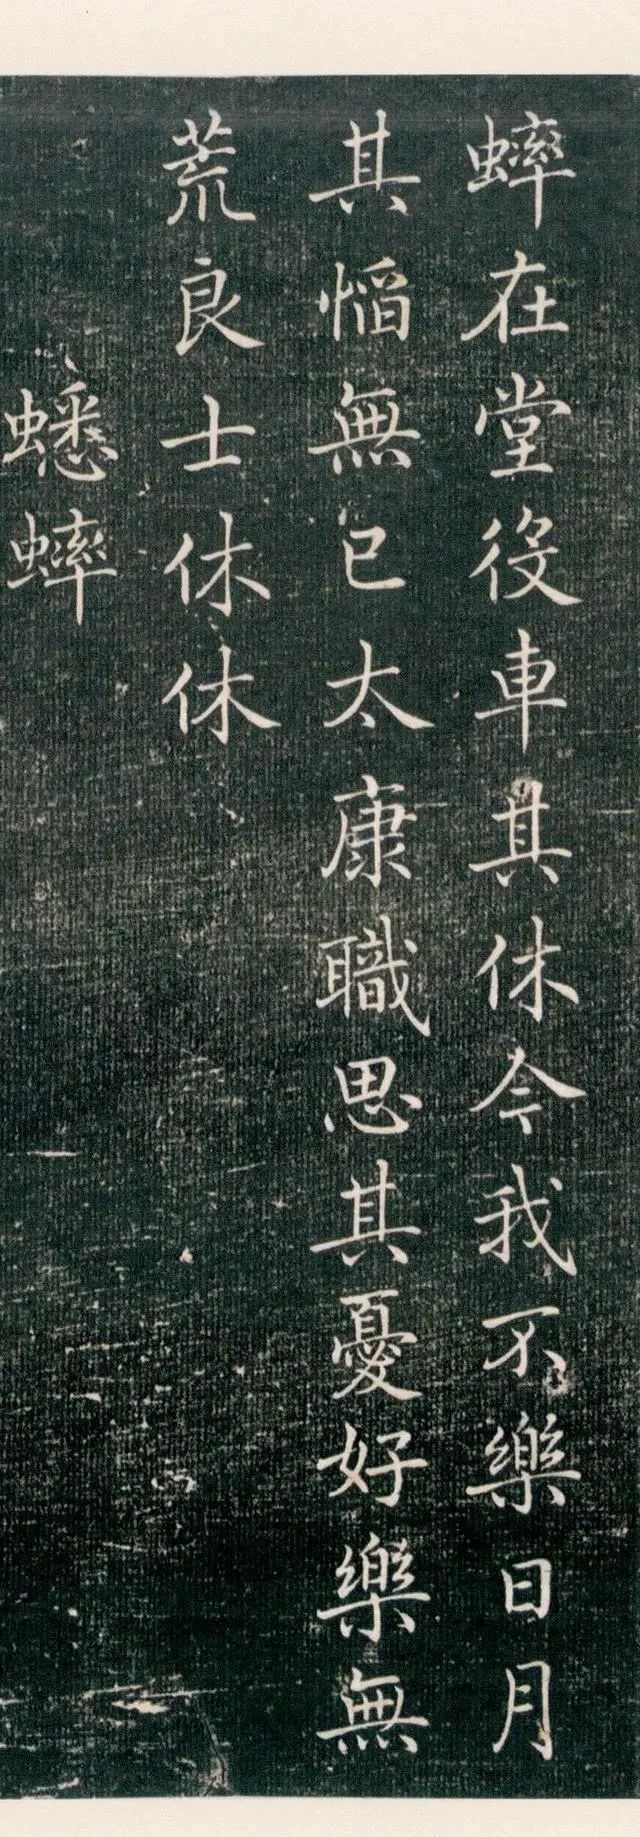 蟀在堂役車其休今我不樂日月
其慆無已太康職思其憂好樂無
荒良士休休
蟋蟀